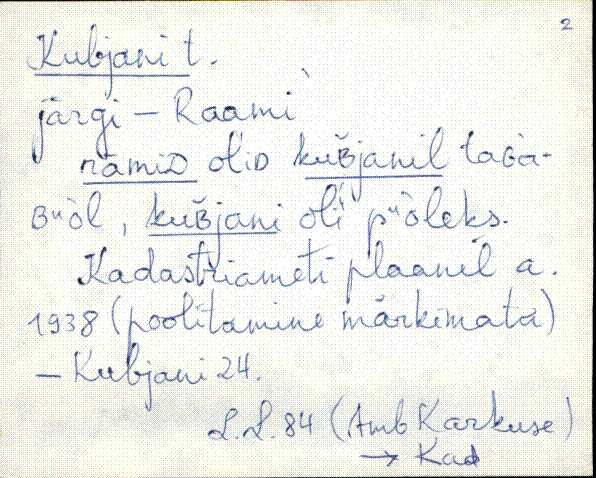 2
Kubjani t.
järgi – Raami
rämiD oĺiD kuʙ̆janil taGa-
Bu̬òl, kuʙ̆jani oĺi pu̬òleks.
Kadastriameti plaanil a.
1938 (poolitamine märkimata)
– Kubjani 24.
L.L. 84 (Amb Karkuse)
→ Kad